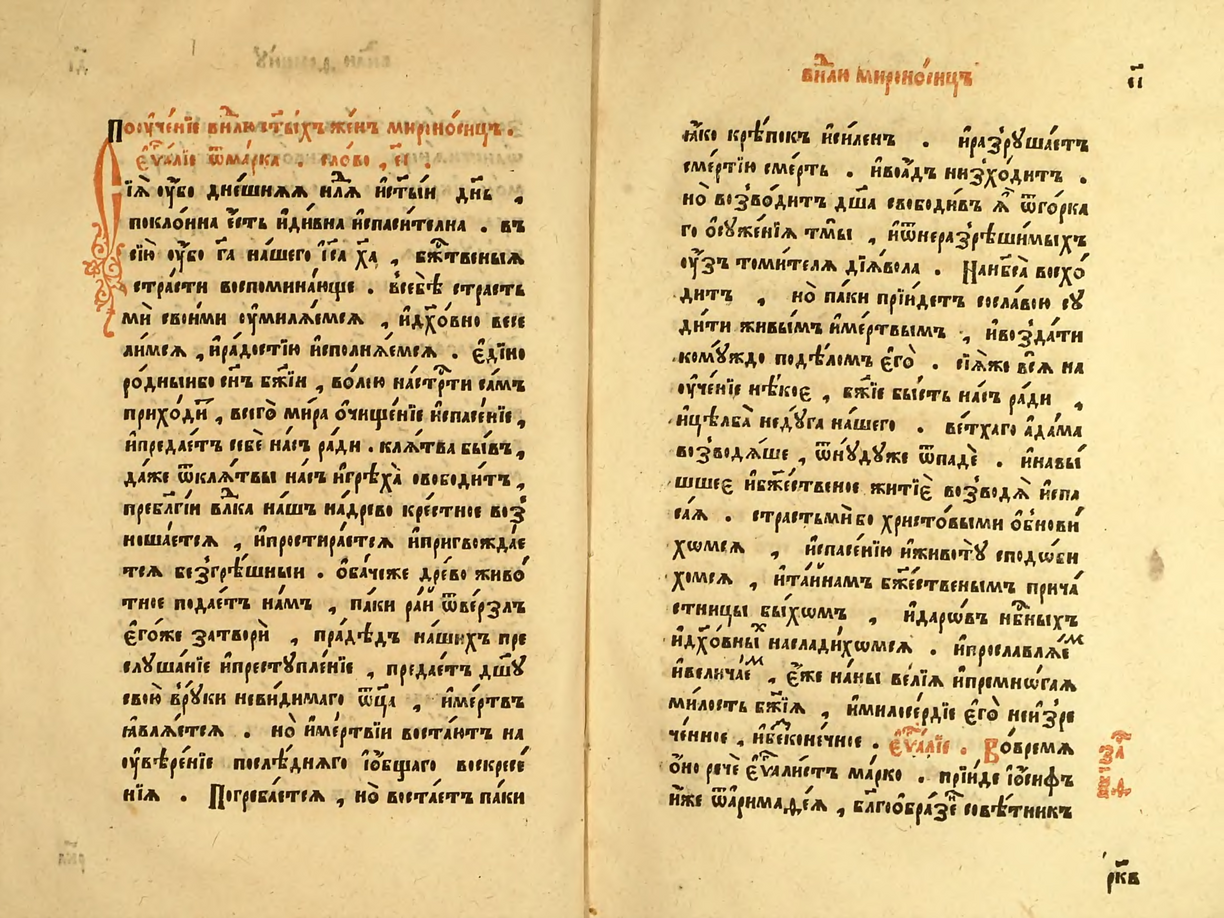 Поꙋче́нїе внⷣлю ст҃ы́хъ же́нъ мироно́сицъ .
є҆ѵⷢ҇алїе ѿма́рка . сло́во , є҃і .
Сїѧ̀ ᲂу҆́бо дне́шнѧѧ нⷣлѧ и҆ст҃ы́и дн҃ь ,
покло́нна є҆́сть и҆ди́вна и҆спаси́телна . въ
сїю̀ ᲂу҆́бо га҃ на́шего і҆с҃а хаⷭ҇ , бжⷭ҇твеныѧ
стра́сти воспомина́юще . в҆себѣ̀ страсть
мѝ свои́ми ᲂу҆милѧ́емсѧ , и҆дх҃о́вно весе
ли́мсѧ , и҆ра́достїю и҆сполнѧ́емсѧ . є҆ди́но
ро́дныибо сн҃ъ бж҃їи , во́лїю на́стрⷭ҇ти са́мъ
приходи́и , всего̀ ми́ра ѻ҆чище́нїе и҆спасе́нїе ,
и҆предае́тъ себѐ на́съ ра́ди . клѧ́тва бы́въ ,
да́же ѿклѧ́твы на́съ и҆грѣха̀ свободи́тъ ,
пребл҃гі́и влⷣка на́шъ на́древо кре́стное воз
ноша́етсѧ , и҆простира́етсѧ и҆пригвождае́
тсѧ безгрѣ́шныи . ѻ҆ба́чеже дре́во живо́
тное подае́тъ на́мъ , па́ки ра́й ѿве́рзлъ
є҆го́же затворѝ , пра́дѣдъ на́шихъ пре
слꙋша́нїе и҆престꙋпле́нїе , предае́тъ дш҃ꙋ
свою̀ в҆рꙋ́ки неви́димаго ѿц҃а̀ , и҆ме́ртвъ
ꙗ҆влѧ́етсѧ . но̀ и҆ме́ртвїи воста́ютъ на
ᲂу҆вѣре́нїе послѣ́днѧго і҆ѻ҆́бщаго воскресе́
нїѧ . Погреба́етсѧ , но̀ востае́тъ па́ки
внⷣлю мироно́сицъ
є҃і
ꙗ҆́ко крѣ́покъ и҆си́ленъ . и҆разрꙋша́етъ
сме́ртїю сме́рть . и҆воа҆́дъ низхо́дитъ .
но̀ возво́дитъ дш҃а свободи́въ ѧ҆̀ ѿго́рка
го ѻ҆сꙋже́нїѧ тмы̀ , и҆ѿнеразрѣши́мыхъ
ᲂу҆́зъ томи́телѧ дїѧ́вола . Нанб҃са̀ восхо́
дитъ , но̀ па́ки прїи́детъ сосла́вою сꙋ
ди́ти живы́мъ и҆ме́ртвымъ , и҆возда́ти
комꙋ́ждо подѣло́мъ є҆го̀ . сїѧ̑же всѧ̀ на
ᲂу҆че́нїе нѣ́кое , бж҃їе бы́сть на́съ ра́ди ,
и҆цѣлба̀ недꙋ́га на́шего . ве́тхаго а҆да́ма
возводѧ́ше , ѿнꙋдꙋ́же ѿпадѐ . и҆навы́
шшее и҆бжⷭ҇е́ственое житїѐ возводѧ̀ и҆спа
са́ѧ . страстьми́бо христо́выми ѻ҆бнови́
хѡмсѧ , и҆спасе́нїю и҆животꙋ̀ сподѡби
хомсѧ , и҆та́йнамъ бжⷭ҇е́ственымъ прича́
стницы бы́хѡмъ , и҆дарѡ́въ нбⷭ҇ныхъ
и҆дх҃о́вныⷯ наслади́хѡмсѧ . и҆прославлѧ́еⷨ
и҆велича́еⷨ , є҆́же на́ны ве́лїѧ и҆премнѡ́гаѧ
ми́лость бж҃їѧ , и҆милосе́рдїе є҆го̀ неизре
че́нное , и҆безконе́чное . є҆ѵⷢ҇алїе . Во́времѧ
ѻ҆́но речѐ є҆ѵⷢ҇али́стъ ма́рко . прїи́де і҆ѡ́сифъ
и҆́же ѿа҆римаѳе́ѧ , бл҃гоѻ҆бра́зенъ совѣ́тникъ
заⷱ҇
рк҃в